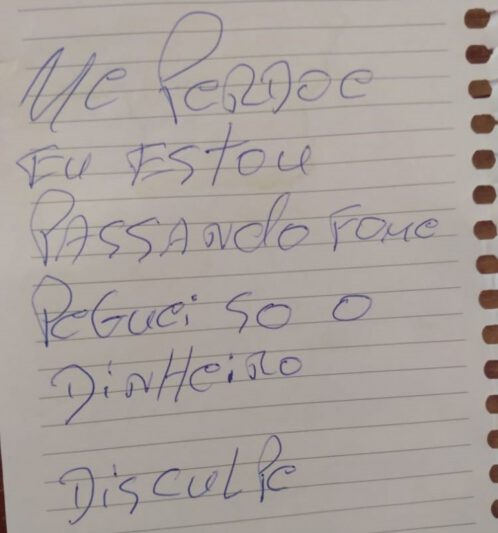 Me Perdoe
Eu Estou
PASSANdo Fome
PeGuei So o
DiNHeiro
DisculPe